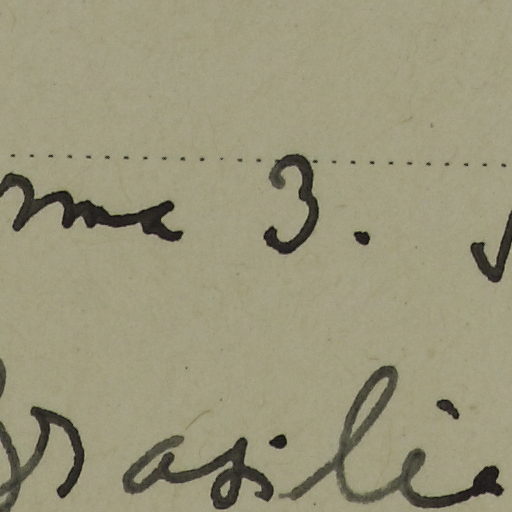 rma 3.
Brasilie